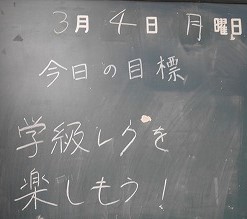 3月4日月曜日
今日の目標
学級レクを
楽しもう！